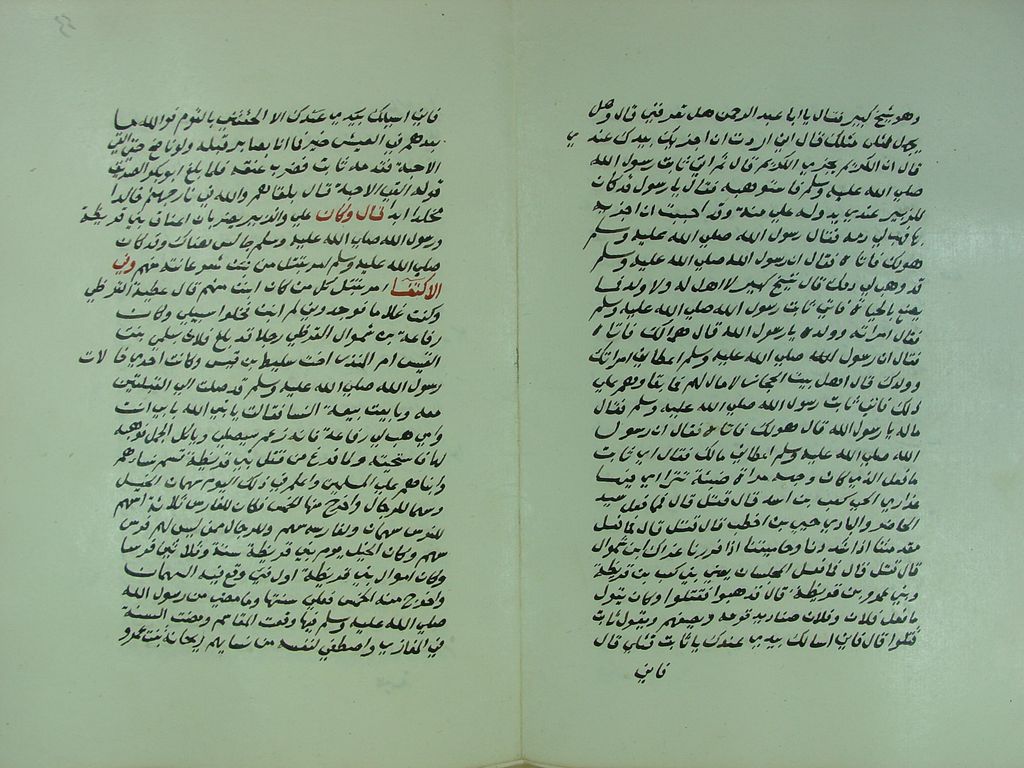 وهو شيخ كبير فقال يا ابا عبد الرحمن هل تعرفني قال وهل
يجهل مثلي مثلك قال اني اردت ان اجزيك بيدك عندي
قال ان الكريم يجزي الكريم قال ثم اتى ثابت رسول الله
صلى الله عليه وسلم فاستوهبه فقال يا رسول قد كان
للزبير عندي يد وله علي منة وقد احببت ان اجزيه
بها فهب لي دمه فقال رسول الله صلى الله عليه وسلم
هو لك فاتاه فقال ان رسول الله صلى الله عليه وسلم
قد وهب لي دمك قال شيخ كبير لا اهل له ولا ولد فما
يصنع بالحياة فاتى ثابت رسول الله صلى الله عليه وسلم
فقال امراته وولده يا رسول الله قال هم لك فاتاه
فقال ان رسول الله صلى الله عليه وسلم اعطاني امراتك
وولدك قال اهل بيت الحجاز لا مال لهم فما بقاوهم على
ذلك فاتى ثابت رسول الله صلى الله عليه وسلم فقال
ماله يا رسول الله قال هو لك فاتاه فقال ان رسول
الله صلى الله عليه وسلم اعطاني مالك فقال اي ثابت
ما فعل الذي كان وجهه مراة صينية تتراى فيها
عذارى الحي كعب بن اسد قال قتل قال فما فعل سيد
الحاضر والبادي حيي بن اخطب قال قتل قال فما فعل
مقدمتنا اذا شددنا وحاميتنا اذا فررنا عزال بن شموال
قال قتل قال فما فعل المجلسان يعني بني كعب بن قريظة
وبني عمرو بن قريظة قال قد هبوا فقتلوا وكان يقول
ما فعل فلان وفلان صناديد قومه ويصفهم ويقول ثابت
قتلوا قال فاني اسالك بيدي عندك يا ثابت قتلي قال
فاني
فاني اسيلك بيدي عندك الا الحقتني بالقوم فوالله ما
بعدهم في العيش خير فما انا بصابر قبلة دلو ناضح حتى القى
الاحبة فقدمه ثابت فضرب عنقه فلما بلغ ابو بكر الصديق
قوله القى الاحبة قال يلقاهم والله في نار جهنم خالدا
مخلدا ابدا قال وكان علي والزبير يضربان اعناق بني قريظة
ورسول الله صلى الله عليه وسلم جالس هناك وقد كان
صلى الله عليه وسلم امر بقتل من نبت شعر عانته منهم وفي
الاكتفا امر بقتل كل من كان انبت منهم قال عطية القرظي
وكنت غلاما فوجدوني لم انبت فخلوا سبيلي وكان
رفاعة بن شموال القرظي رجلا قد بلغ فلاذ بسلمى بنت
القيس ام المنذر اخت سليط بن قيس وكانت احدى خالات
رسول الله صلى الله عليه وسلم قد صلت الى القبلتين
معه وبايعت بيعة النسا فقالت يا نبي الله بابي انت
وامي هب لي رفاعة فانه زعم سيصلي وياكل الجمل فوهبه
لها فاستحيته ولما فرغ من قتل بني قريظة قسم نساهم
وابناهم على المسلمين واعلم في ذلك اليوم سهمان الخيل
وسهما للرجال واخرج منها الخمس فكان للفارس ثلاثة اسهم
للفرس سهمان ولفارسه سهم وللرجال ممن ليس لهم فرس
سهم وكان الخيل يوم بني قريظة ستة وثلاثين فرسا
وكان اموال بني قريظة اول فيئ وقع فيه السهمان
واخرج منه الخمس فعلى سنتها وما مضى من رسول الله
صلى الله عليه وسلم فيها وقعت المقاسم ومضت السنة
في المغازي واصطفى لنفسه من نسايهم ريحانة بنت عمرو